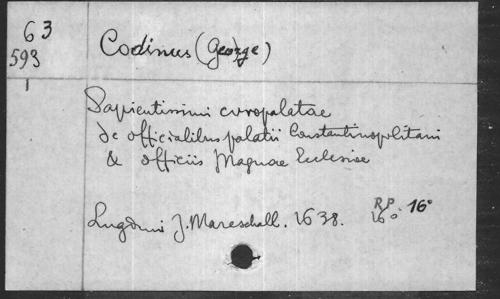 63
593
Codinus (George)
Sapientissimi curopalatae
de officialibus palatii Constantinopolitani
& officiis Magnae Ecclesiae
Lugduni J. Mareschall. 1638. 16°
RP. 16°